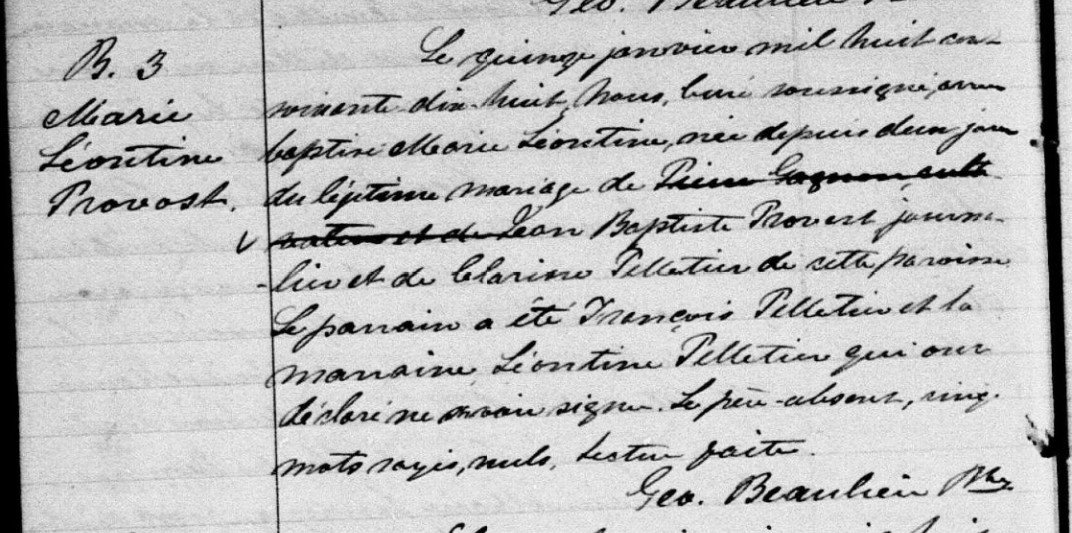 Geo. Beaulieu
B. 3
Marie
Léontine
Provost.
Le quinze janvier mil huit cent
soixante dix-huit, Nous, Curé soussigné, avons
baptisé Marie Léontine, née depuis deux jours
du légitime mariage de Pierre Gagnon cult-
ivateur et de Jean Baptiste Provost journa-
-lier et de Clarisse Pelletier de cette paroisse
Le parrain a été François Pelletier et la
marraine Léontine Pelletier qui ont
déclaré ne savoir signer. Le père absent, cinq
mots rayés, nuls, Lecture faite.
Geo. Beaulieu Ptre